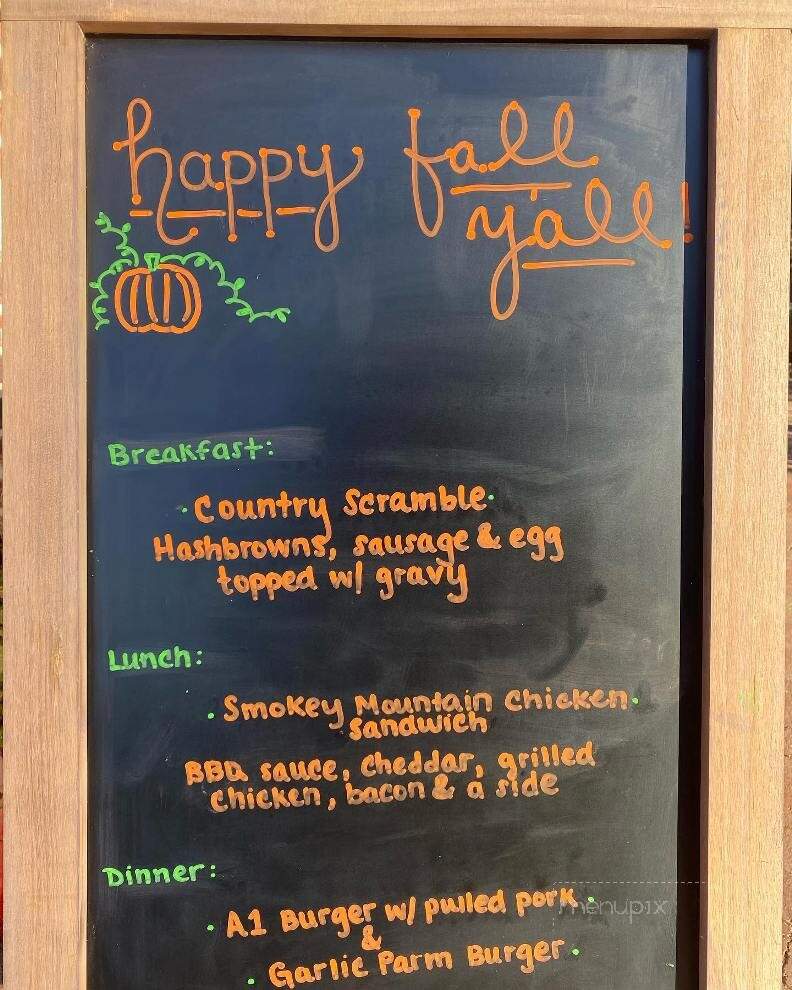 happy fall
y'all!
Breakfast:
· Country Scramble ·
Hashbrowns, sausage & egg
topped w/ gravy
Lunch:
· Smokey Mountain Chicken ·
sandwich
BBQ sauce, cheddar, grilled
chicken, bacon & a side
Dinner:
· A1 Burger w/ pulled pork ·
&
· Garlic Parm Burger ·
menupix